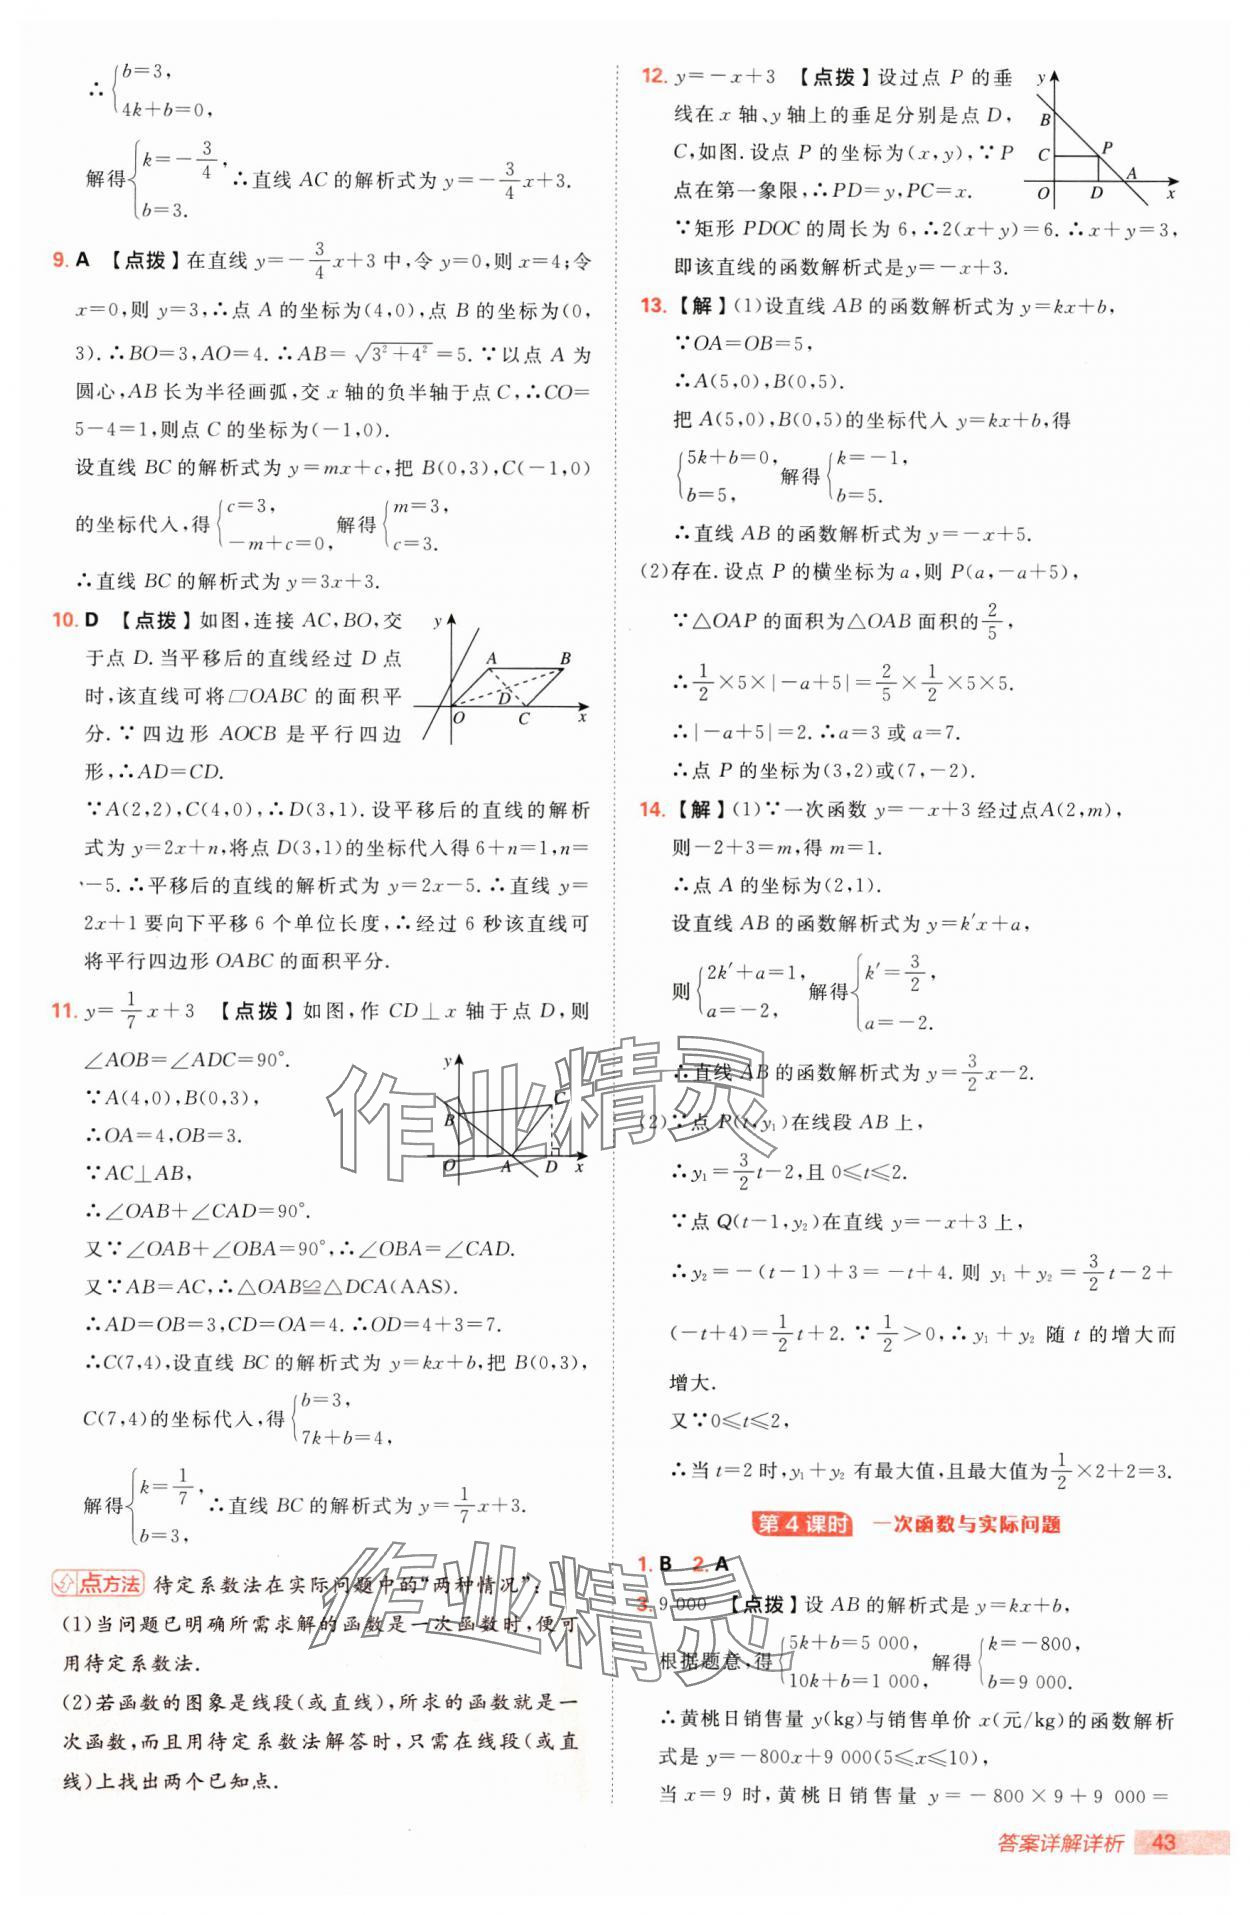 ∴{b=3,
4k+b=0,
解得{k=-3/4, b=3. ∴直线 AC 的解析式为 y=-3/4x+3.
9. A 【点拨】在直线 y=-3/4x+3 中,令 y=0,则 x=4;令
x=0,则 y=3,∴点 A 的坐标为(4,0),点 B 的坐标为(0,
3).∴BO=3,AO=4.∴AB=√(3²+4²)=5.∵以点 A 为
圆心,AB 长为半径画弧,交 x 轴的负半轴于点 C,∴CO=
5-4=1,则点 C 的坐标为(-1,0).
设直线 BC 的解析式为 y=mx+c,把 B(0,3),C(-1,0)
的坐标代入,得{c=3, -m+c=0, 解得{m=3, c=3.
∴直线 BC 的解析式为 y=3x+3.
10. D 【点拨】如图,连接 AC,BO,交
于点 D.当平移后的直线经过 D 点
时,该直线可将▱OABC 的面积平
分.∵四边形 AOCB 是平行四边
形,∴AD=CD.
y A B D O C x
∵A(2,2),C(4,0),∴D(3,1).设平移后的直线的解析
式为 y=2x+n,将点 D(3,1)的坐标代入得 6+n=1,n=
-5.∴平移后的直线的解析式为 y=2x-5.∴直线 y=
2x+1 要向下平移 6 个单位长度,∴经过 6 秒该直线可
将平行四边形 OABC 的面积平分.
11. y=1/7x+3 【点拨】如图,作 CD⊥x 轴于点 D,则
∠AOB=∠ADC=90°.
∵A(4,0),B(0,3),
∴OA=4,OB=3.
∵AC⊥AB,
∴∠OAB+∠CAD=90°.
y C B O A D x
又∵∠OAB+∠OBA=90°,∴∠OBA=∠CAD.
又∵AB=AC,∴△OAB≌△DCA(AAS).
∴AD=OB=3,CD=OA=4.∴OD=4+3=7.
∴C(7,4),设直线 BC 的解析式为 y=kx+b,把 B(0,3),
C(7,4)的坐标代入,得{b=3, 7k+b=4,
解得{k=1/7, b=3, ∴直线 BC 的解析式为 y=1/7x+3.
点方法 待定系数法在实际问题中的“两种情况”:
(1)当问题已明确所需求解的函数是一次函数时,便可
用待定系数法.
(2)若函数的图象是线段(或直线),所求的函数就是一
次函数,而且用待定系数法解答时,只需在线段(或直
线)上找出两个已知点.
12. y=-x+3 【点拨】设过点 P 的垂
线在 x 轴、y 轴上的垂足分别是点 D,
C,如图.设点 P 的坐标为(x,y),∵P
点在第一象限,∴PD=y,PC=x.
y B C P A O D x
∵矩形 PDOC 的周长为 6,∴2(x+y)=6.∴x+y=3,
即该直线的函数解析式是y=-x+3.
13.【解】(1)设直线 AB 的函数解析式为 y=kx+b,
∵OA=OB=5,
∴A(5,0),B(0,5).
把 A(5,0),B(0,5)的坐标代入 y=kx+b,得
{5k+b=0, b=5, 解得{k=-1, b=5.
∴直线 AB 的函数解析式为 y=-x+5.
(2)存在.设点 P 的横坐标为 a,则 P(a,-a+5),
∵△OAP 的面积为△OAB 面积的2/5,
∴1/2×5×|-a+5|=2/5×1/2×5×5.
∴|-a+5|=2.∴a=3或a=7.
∴点 P 的坐标为(3,2)或(7,-2).
14.【解】(1)∵一次函数 y=-x+3 经过点A(2,m),
则-2+3=m,得 m=1.
∴点 A 的坐标为(2,1).
设直线 AB 的函数解析式为 y=k′x+a,
则{2k′+a=1, a=-2, 解得{k′=3/2, a=-2.
∴直线 AB 的函数解析式为 y=3/2x-2.
(2)∵点 P(t,y₁)在线段 AB 上,
∴y₁=3/2t-2,且 0≤t≤2.
∵点 Q(t-1,y₂)在直线 y=-x+3 上,
∴y₂=-(t-1)+3=-t+4.则 y₁+y₂=3/2t-2+
(-t+4)=1/2t+2.∵1/2>0,∴y₁+y₂ 随 t 的增大而
增大.
又∵0≤t≤2,
∴当 t=2 时,y₁+y₂ 有最大值,且最大值为1/2×2+2=3.
第 4 课时 一次函数与实际问题
1. B 2. A
3. 9 000 【点拨】设 AB 的解析式是 y=kx+b,
根据题意,得{5k+b=5 000, 10k+b=1 000, 解得{k=-800, b=9 000.
∴黄桃日销售量 y(kg)与销售单价 x(元/kg)的函数解析
式是 y=-800x+9 000(5≤x≤10),
当 x=9 时,黄桃日销售量 y=-800×9+9 000=
作业精灵
作业精灵
答案详解详析 43